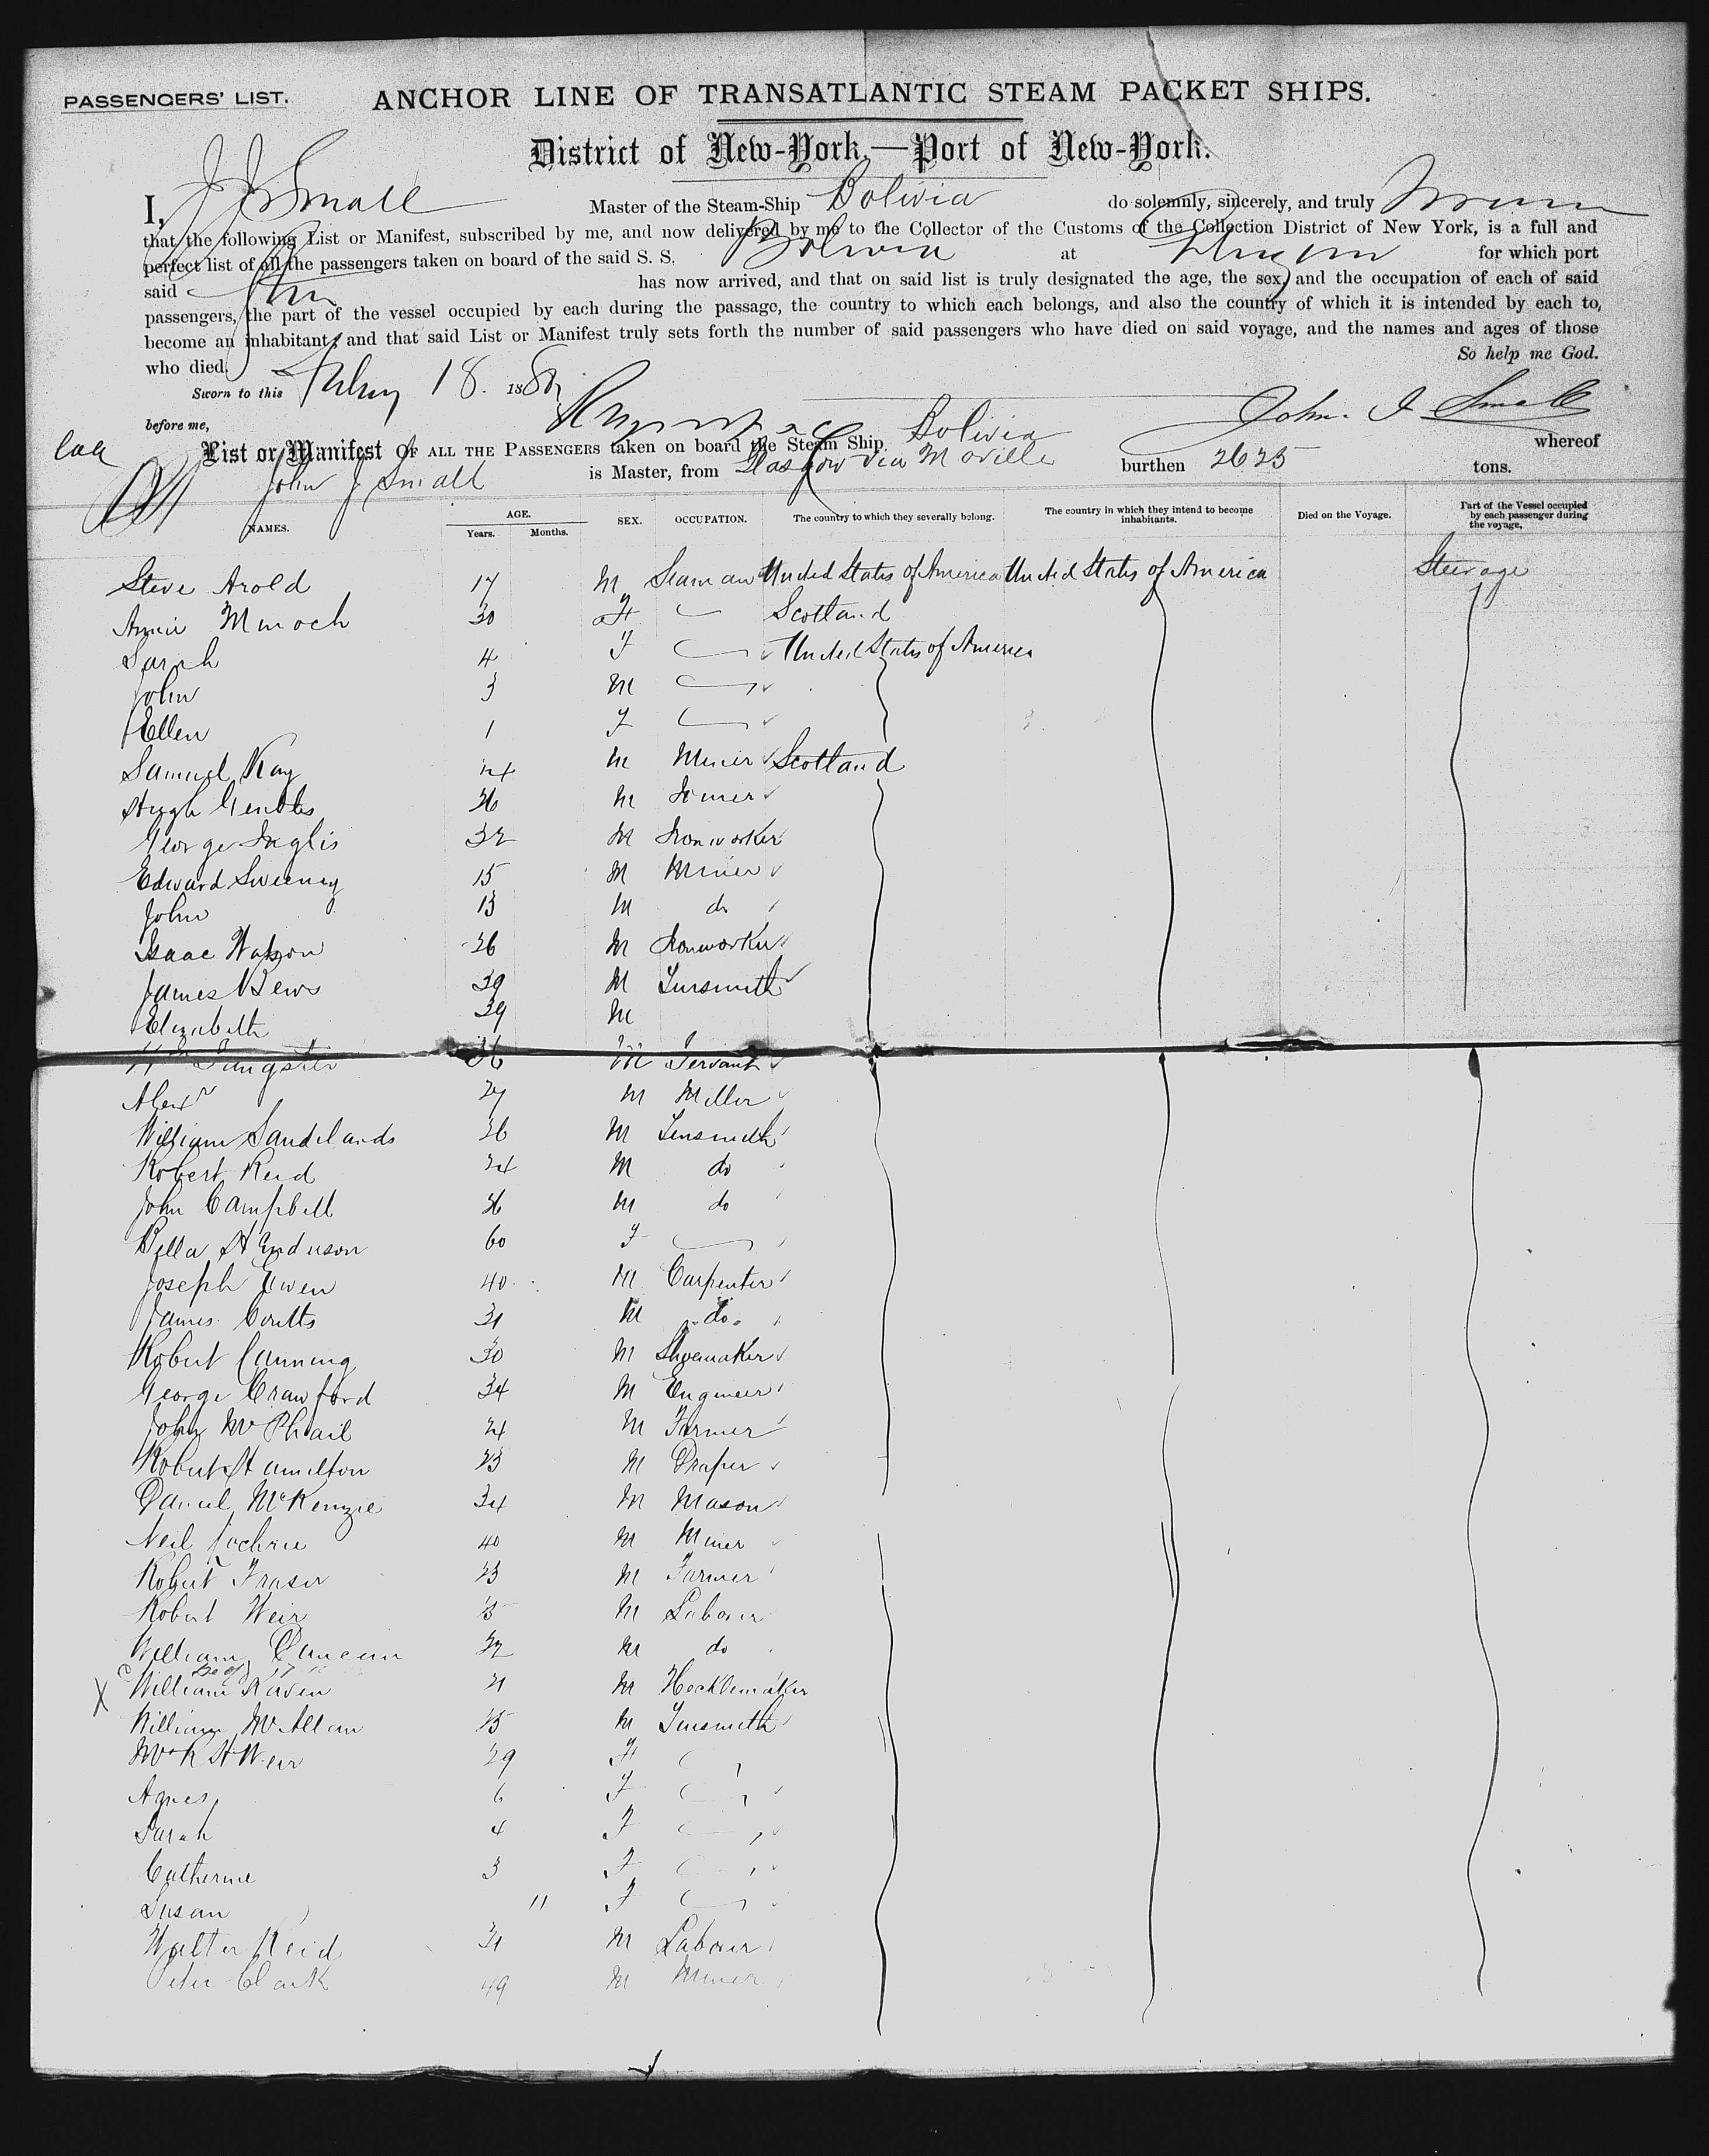 PASSENGERS' LIST.
ANCHOR LINE OF TRANSATLANTIC STEAM PACKET SHIPS.
District of New-York.—Port of New-York.
I, J J Small Master of the Steam-Ship Bolivia do solemnly, sincerely, and truly
that the following List or Manifest, subscribed by me, and now delivered by me to the Collector of the Customs of the Collection District of New York, is a full and
perfect list of all the passengers taken on board of the said S. S. Bolivia at for which port
said has now arrived, and that on said list is truly designated the age, the sex, and the occupation of each of said
passengers, the part of the vessel occupied by each during the passage, the country to which each belongs, and also the country of which it is intended by each to,
become an inhabitant; and that said List or Manifest truly sets forth the number of said passengers who have died on said voyage, and the names and ages of those
who died. So help me God.
Sworn to this 18. 188
before me, John J Small
List or Manifest OF ALL THE PASSENGERS taken on board the Steam Ship Bolivia whereof
John J Small is Master, from Glasgow via Moville burthen 2625 tons.
NAMES. AGE. Years. Months. SEX. OCCUPATION. The country to which they severally belong. The country in which they intend to become inhabitants. Died on the Voyage. Part of the Vessel occupied by each passenger during the voyage.
Steve Arold 17 M Seaman United States of America United States of America Steerage
Annie Minoch 30 F Scotland
Sarah 4 F United States of America
John 3 M
Ellen 1 F
Samuel Kay 24 M Miner Scotland
Hugh Gentles 26 M Joiner
George Inglis 32 M Ironworker
Edward Sweeney 15 M Miner
John 13 M do
Isaac Watson 26 M Ironworker
James Bews 39 M Tinsmith
Elizabeth 39 M
Sangster 36 M Servant
Alexr 27 M Miller
William Sandilands 26 M Tinsmith
Robert Reid 24 M do
John Campbell 26 M do
Bella Henderson 60 F
Joseph Ewen 40 M Carpenter
James Coutts 31 M do
Robert Canning 30 M Shoemaker
George Crawford 34 M Engineer
John McPhail 24 M Farmer
Robert Hamilton 23 M Draper
Daniel McKenzie 34 M Mason
Neil Jochrie 40 M Miner
Robert Fraser 23 M Farmer
Robert Weir M Laborer
William Duncan 32 M do
X William Raven 21 M Hecklemaker
William McAllan 25 M Tinsmith
Mrs R H Weir 29 F
Agnes 6 F
Sarah 4 F
Catherine 3 F
Susan 11 F
Walter Reid 31 M Laborer
Peter Clark 49 M Miner